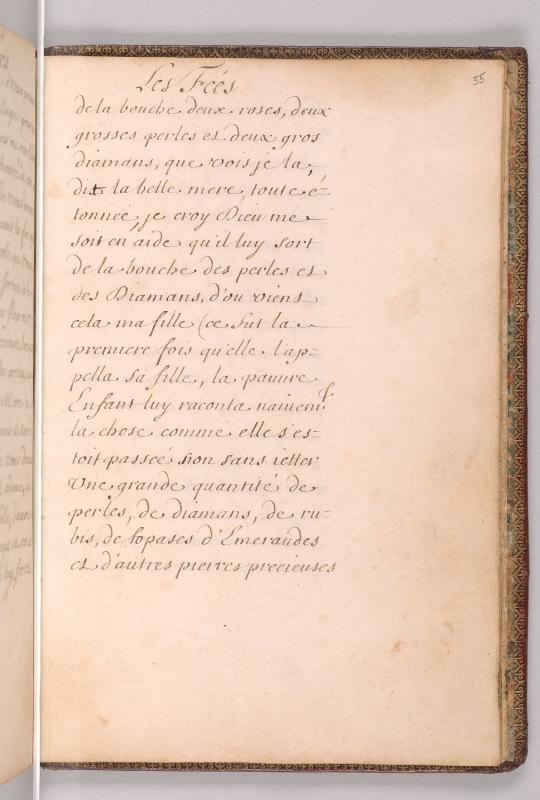 Les Feés
55
de la bouche deux roses, deux
grosses perles et deux gros
diamans, que vois je la,
dit la belle mere toute é-
tonnée, je croy Dieu me
soit en aide qu'il luy sort
de la bouche des perles et
des Diamans, d'ou viens
cela ma fille (ce fut la
premiere fois qu'elle l'ap-
pella sa fille, la pauure
Enfant luy raconta naiuem.t
la chose comme elle s'es-
toit passeé non sans ietter
Vne grande quantité de
perles, de diamans, de ru-
bis, de topases d'Emeraudes
et d'autres pierres precieuses